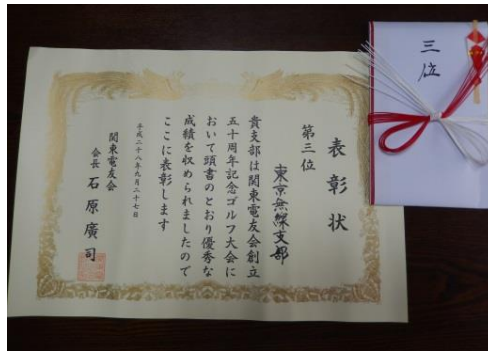 表彰状
第三位
東京無線支部
貴支部は関東電友会創立
五十周年記念ゴルフ大会に
おいて頭書のとおり優秀な
成績を収められましたので
ここに表彰します
平成二十八年九月二十七日
関東電友会
会長 石原廣司
三位